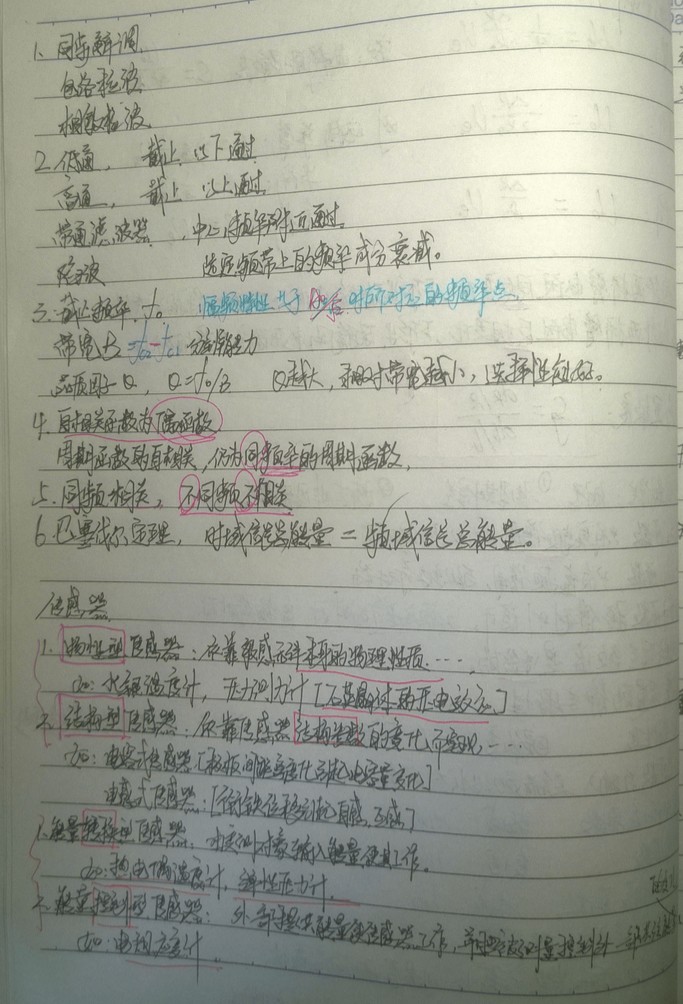 1. 同步解调
包络检波
相敏检波
2. 低通, 截止 以下通过
高通, 截止 以上通过
带通滤波器, 中心频率附近通过
陷波 频带上的频率成分衰减。
3. 截止频率, f₀ 幅频特性 时所对应的频率点
带宽 B = fc2 - fc1 分辨能力
品质因子 Q, Q = f₀/B Q越大, 相对带宽越小, 选择性越好。
4. 自相关函数为偶函数
周期函数的自相关, 仍为同频率的周期函数,
5. 同频相关, 不同频不相关
6. 巴塞伐尔定理, 时域信号总能量 = 频域信号总能量。
传感器
1. 物性型传感器: 依靠敏感元件本身的物理性质……
如: 水银温度计, 压力测力计 [石英晶体的压电效应]
2. 结构型传感器: 依靠传感器结构参数的变化而实现……
如: 电容式传感器 [极板间距变化引起电容量变化]
电感式传感器: [衔铁位移引起自感, 互感]
1. 能量转换型传感器, 对被测对象输入能量使其工作。
如: 热电偶温度计, 弹性压力计.
2. 能量控制型传感器: 外部提供能量使传感器工作,
如: 电阻应变计